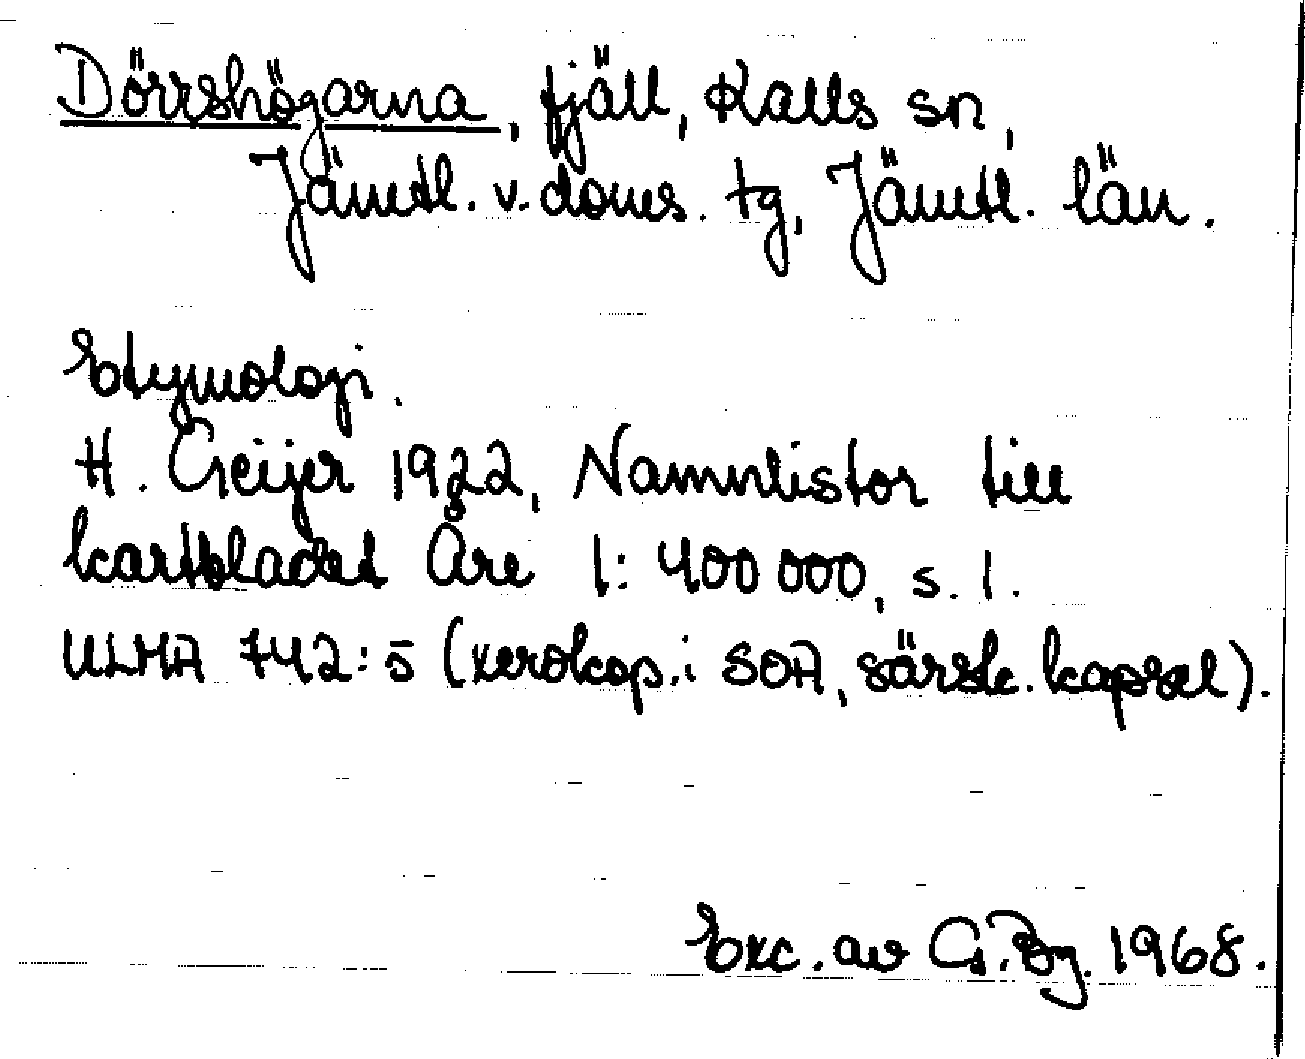 Dörrshögarna, fjäll, Kalls sn,
Jämtl. v. doms. tg, Jämtl. län.
Etymologi.
H. Geijer 1922, Namnlistor till
kartbladet Åre 1:400 000, s. 1.
ULMA 742:5 (xerokop. i SOA, särsk. kapsel).
Exc. av G. By. 1968.